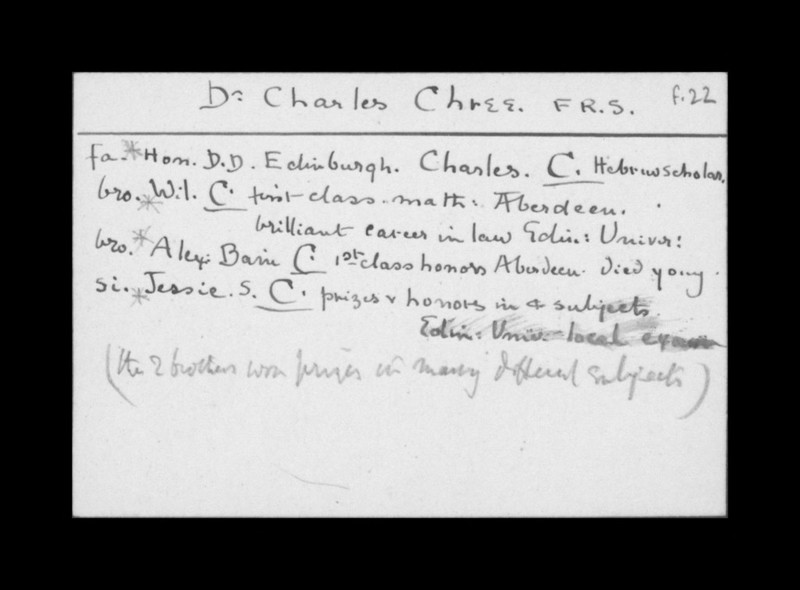 Dr: Charles Chree. F.R.S. f.22
fa. * Hon. D.D. Edinburgh. Charles. C. Hebrew scholar.
bro. * Wil. C. first class math: Aberdeen.
brilliant career in law Edin: Univer:
bro. * Alex: Bain C. 1st class honors Aberdeen. died young.
si. * Jessie. S. C. prizes & honors in 4 subjects.
Edin: Univ. local exam
(the 2 brothers won prizes in many different subjects)